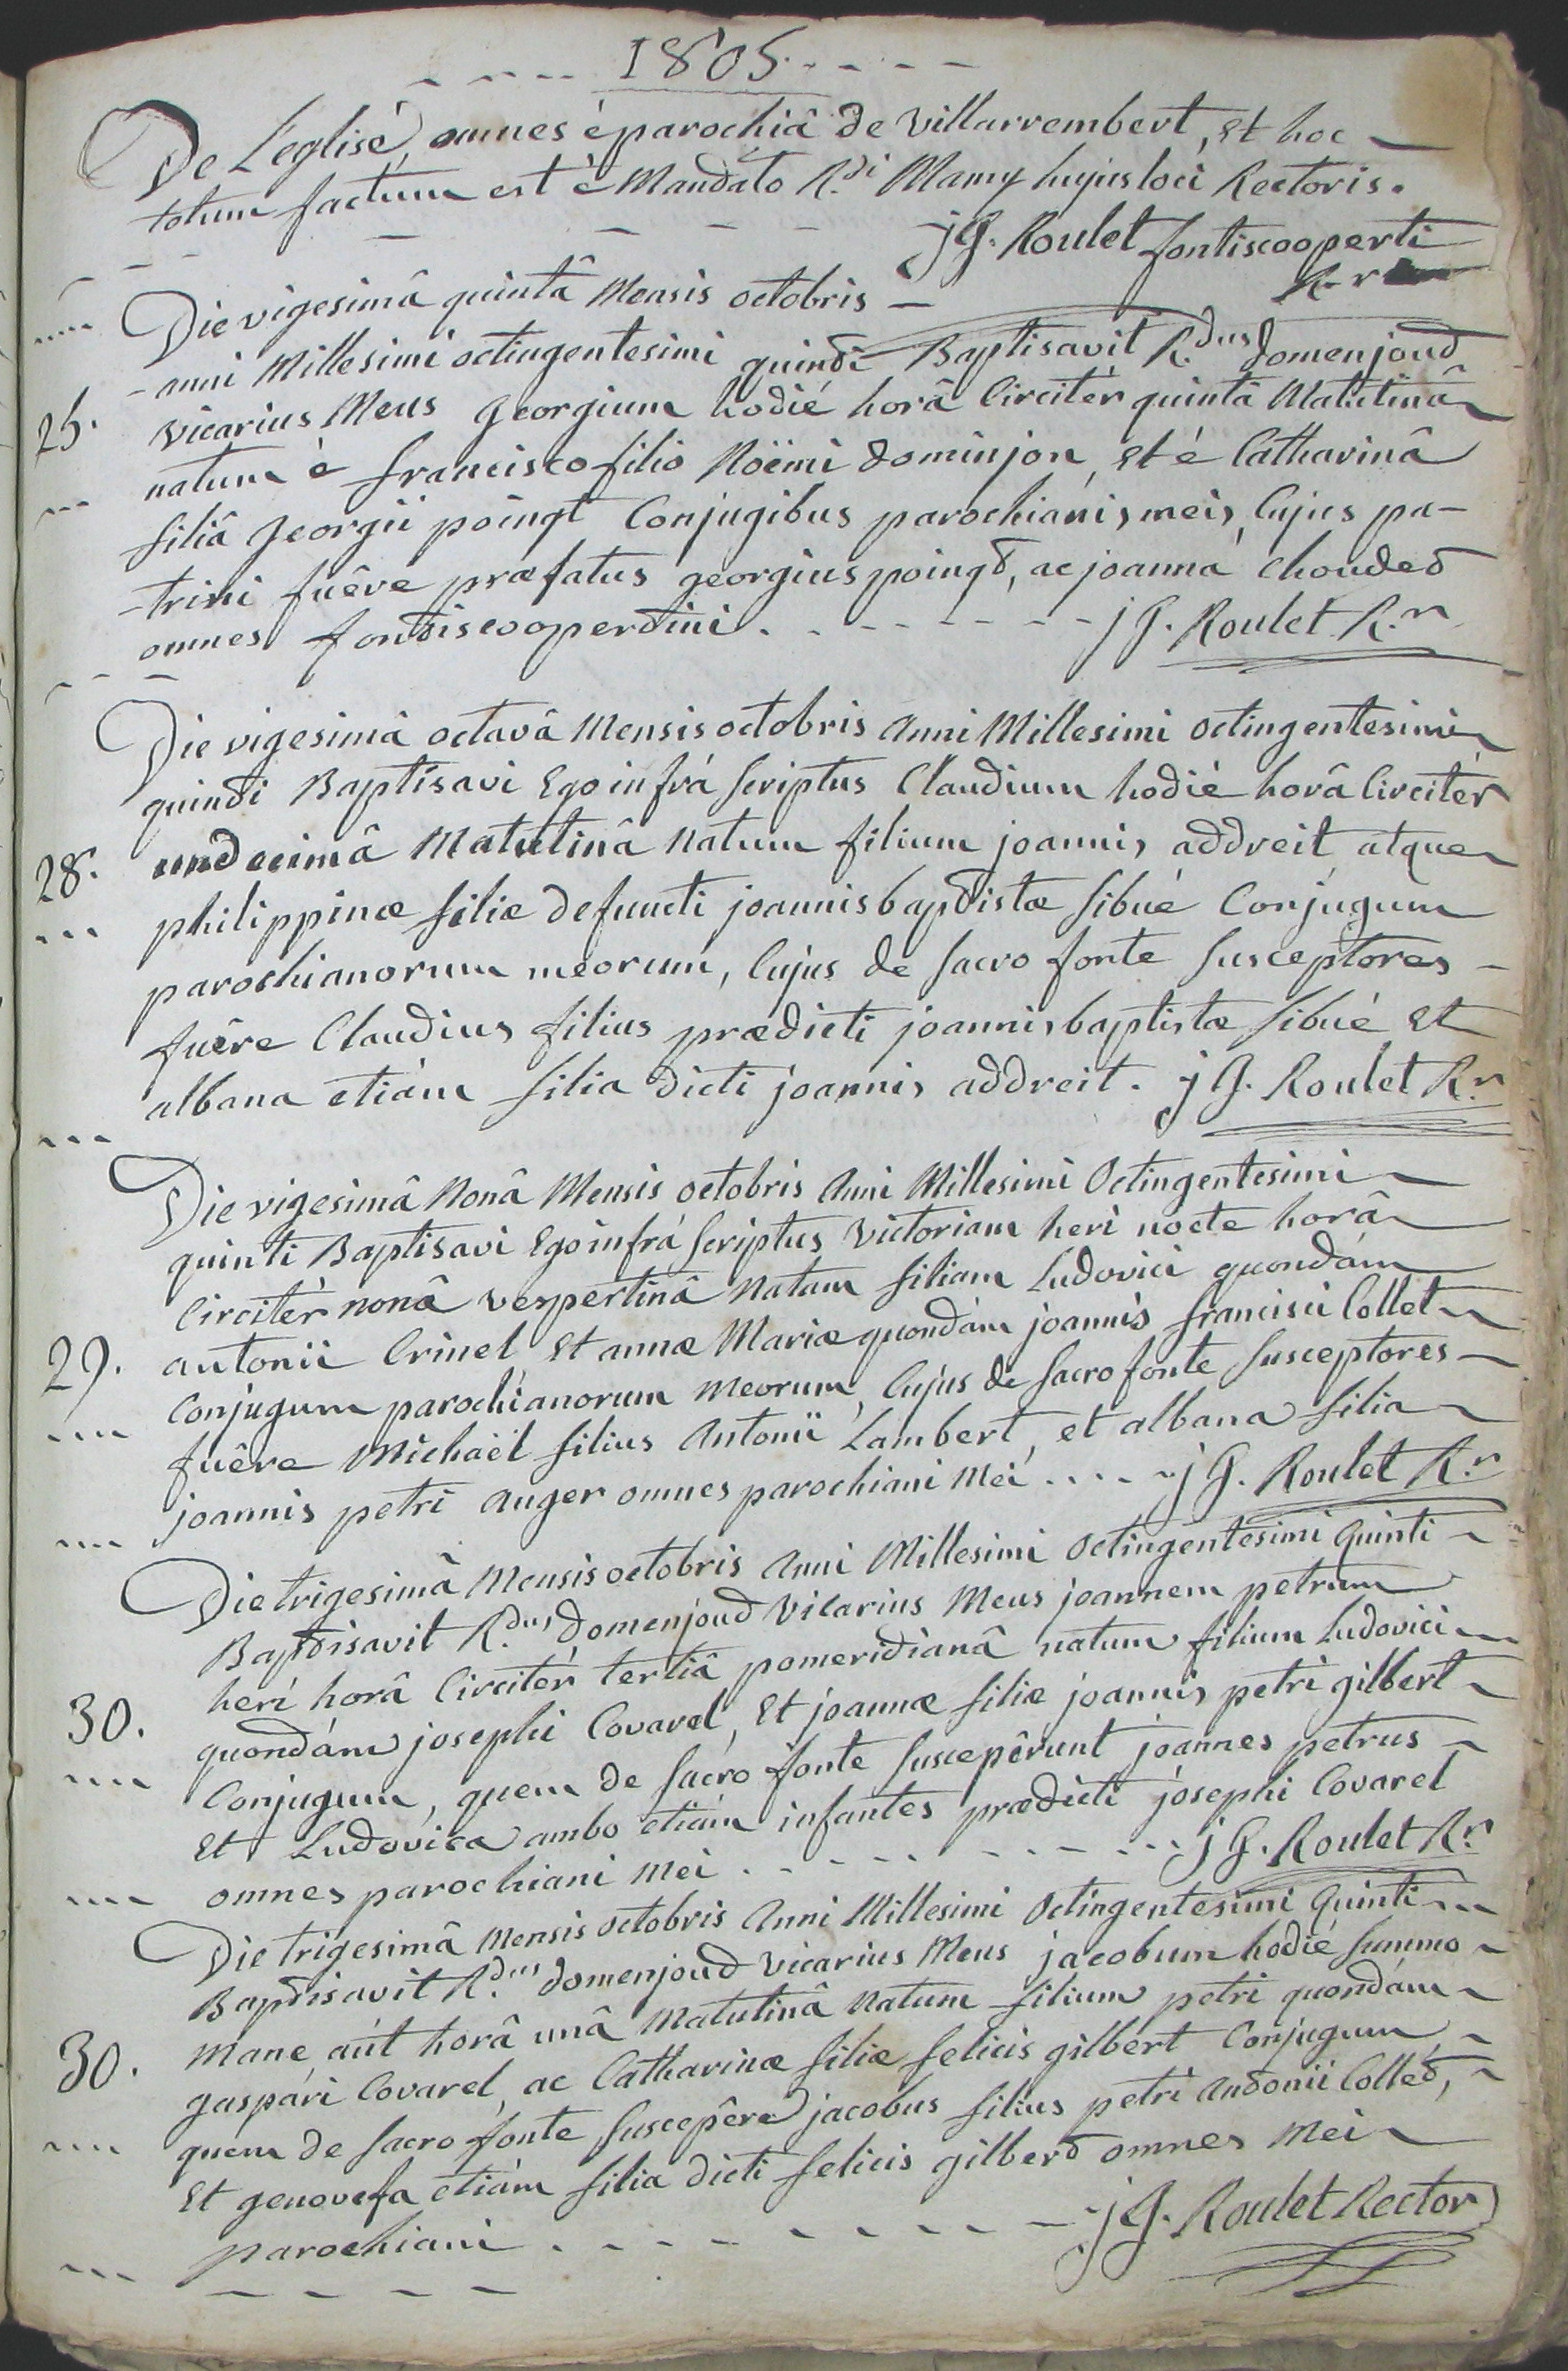 1805
De L'eglise, omnes è parochiâ de Villarrembert, et hoc
totum factum est è Mandato R.di Mamy hujus loci Rectoris.
jG. Roulet fontiscooperti
R.r
Die vigesimâ quintâ Mensis octobris
anni Millesimi octingentesimi quinti Baptisavit R.dus Domenjoud
25. vicarius Meus Georgium hodié horâ Circitér quintâ Matutinâ
natum è francisco filio Noëmi dominjon, et é Catharinâ
filiâ Georgii poingt Conjugibus parochianis meis, Cujus pa-
-trini fuêre præfatus georgius poingt, ac joanna Choudet
omnes fontiscoopertini. jG. Roulet R.r
Die vigesimâ octavâ Mensis octobris Anni Millesimi octingentesimi
quinti Baptisavi Ego infrá scriptus Claudium hodié horâ Circitér
28. undecimâ Matutinâ Natum filium joannis addreit atque
philippinæ filiæ defuncti joannisbaptistæ Sibué Conjugum
parochianorum meorum, Cujus de sacro fonte susceptores
fuêre Claudius filius prædicti joannisbaptistæ Sibué Et
albana etiám filia dicti joannis addreit. jG. Roulet R.r
Die vigesimâ Nonâ Mensis octobris Anni Millesimi Octingentesimi
quinti Baptisavi Ego infrá scriptus Victoriam heri nocte horâ
Circitér nonâ vespertinâ Natam filiam Ludovici quondám
29. antonii Crinel, Et annæ Mariæ quondám joannis francisci Collet
Conjugum parochianorum Meorum, Cujus de sacro fonte susceptores
fuêre Michaël filius Antonii Lambert, et albana filia
joannis petri auger omnes parochiani Mei jG. Roulet R.r
Die trigesimâ Mensis octobris Anni Millesimi Octingentesimi Quinti
Baptisavit R.dus Domenjoud Vicarius Meus joannem petrum
heri horâ Circitér tertiâ pomeridianâ natum filium Ludovici
30. quondám josephi Covarel, Et joannæ filiæ joannis petri gilbert
Conjugum, quem de sacro fonte suscepêrunt joannes petrus
Et Ludovica ambo etiám infantes prædicti josephi Covarel
omnes parochiani Mei jG. Roulet R.r
Die trigesimâ Mensis octobris Anni Millesimi Octingentesimi Quinti
Baptisavit R.dus Domenjoud Vicarius Meus jacobum hodié summo
Mane, aút horâ unâ Matutinâ Natum filium petri quondám
30. gaspári Covarel, ac Catharinæ filiæ felicis gilbert Conjugum
quem de sacro fonte suscepêre jacobus filius petri antonii Collet,
Et genovefa etiám filia dicti felicis gilbert omnes Mei
parochiani jG. Roulet Rector